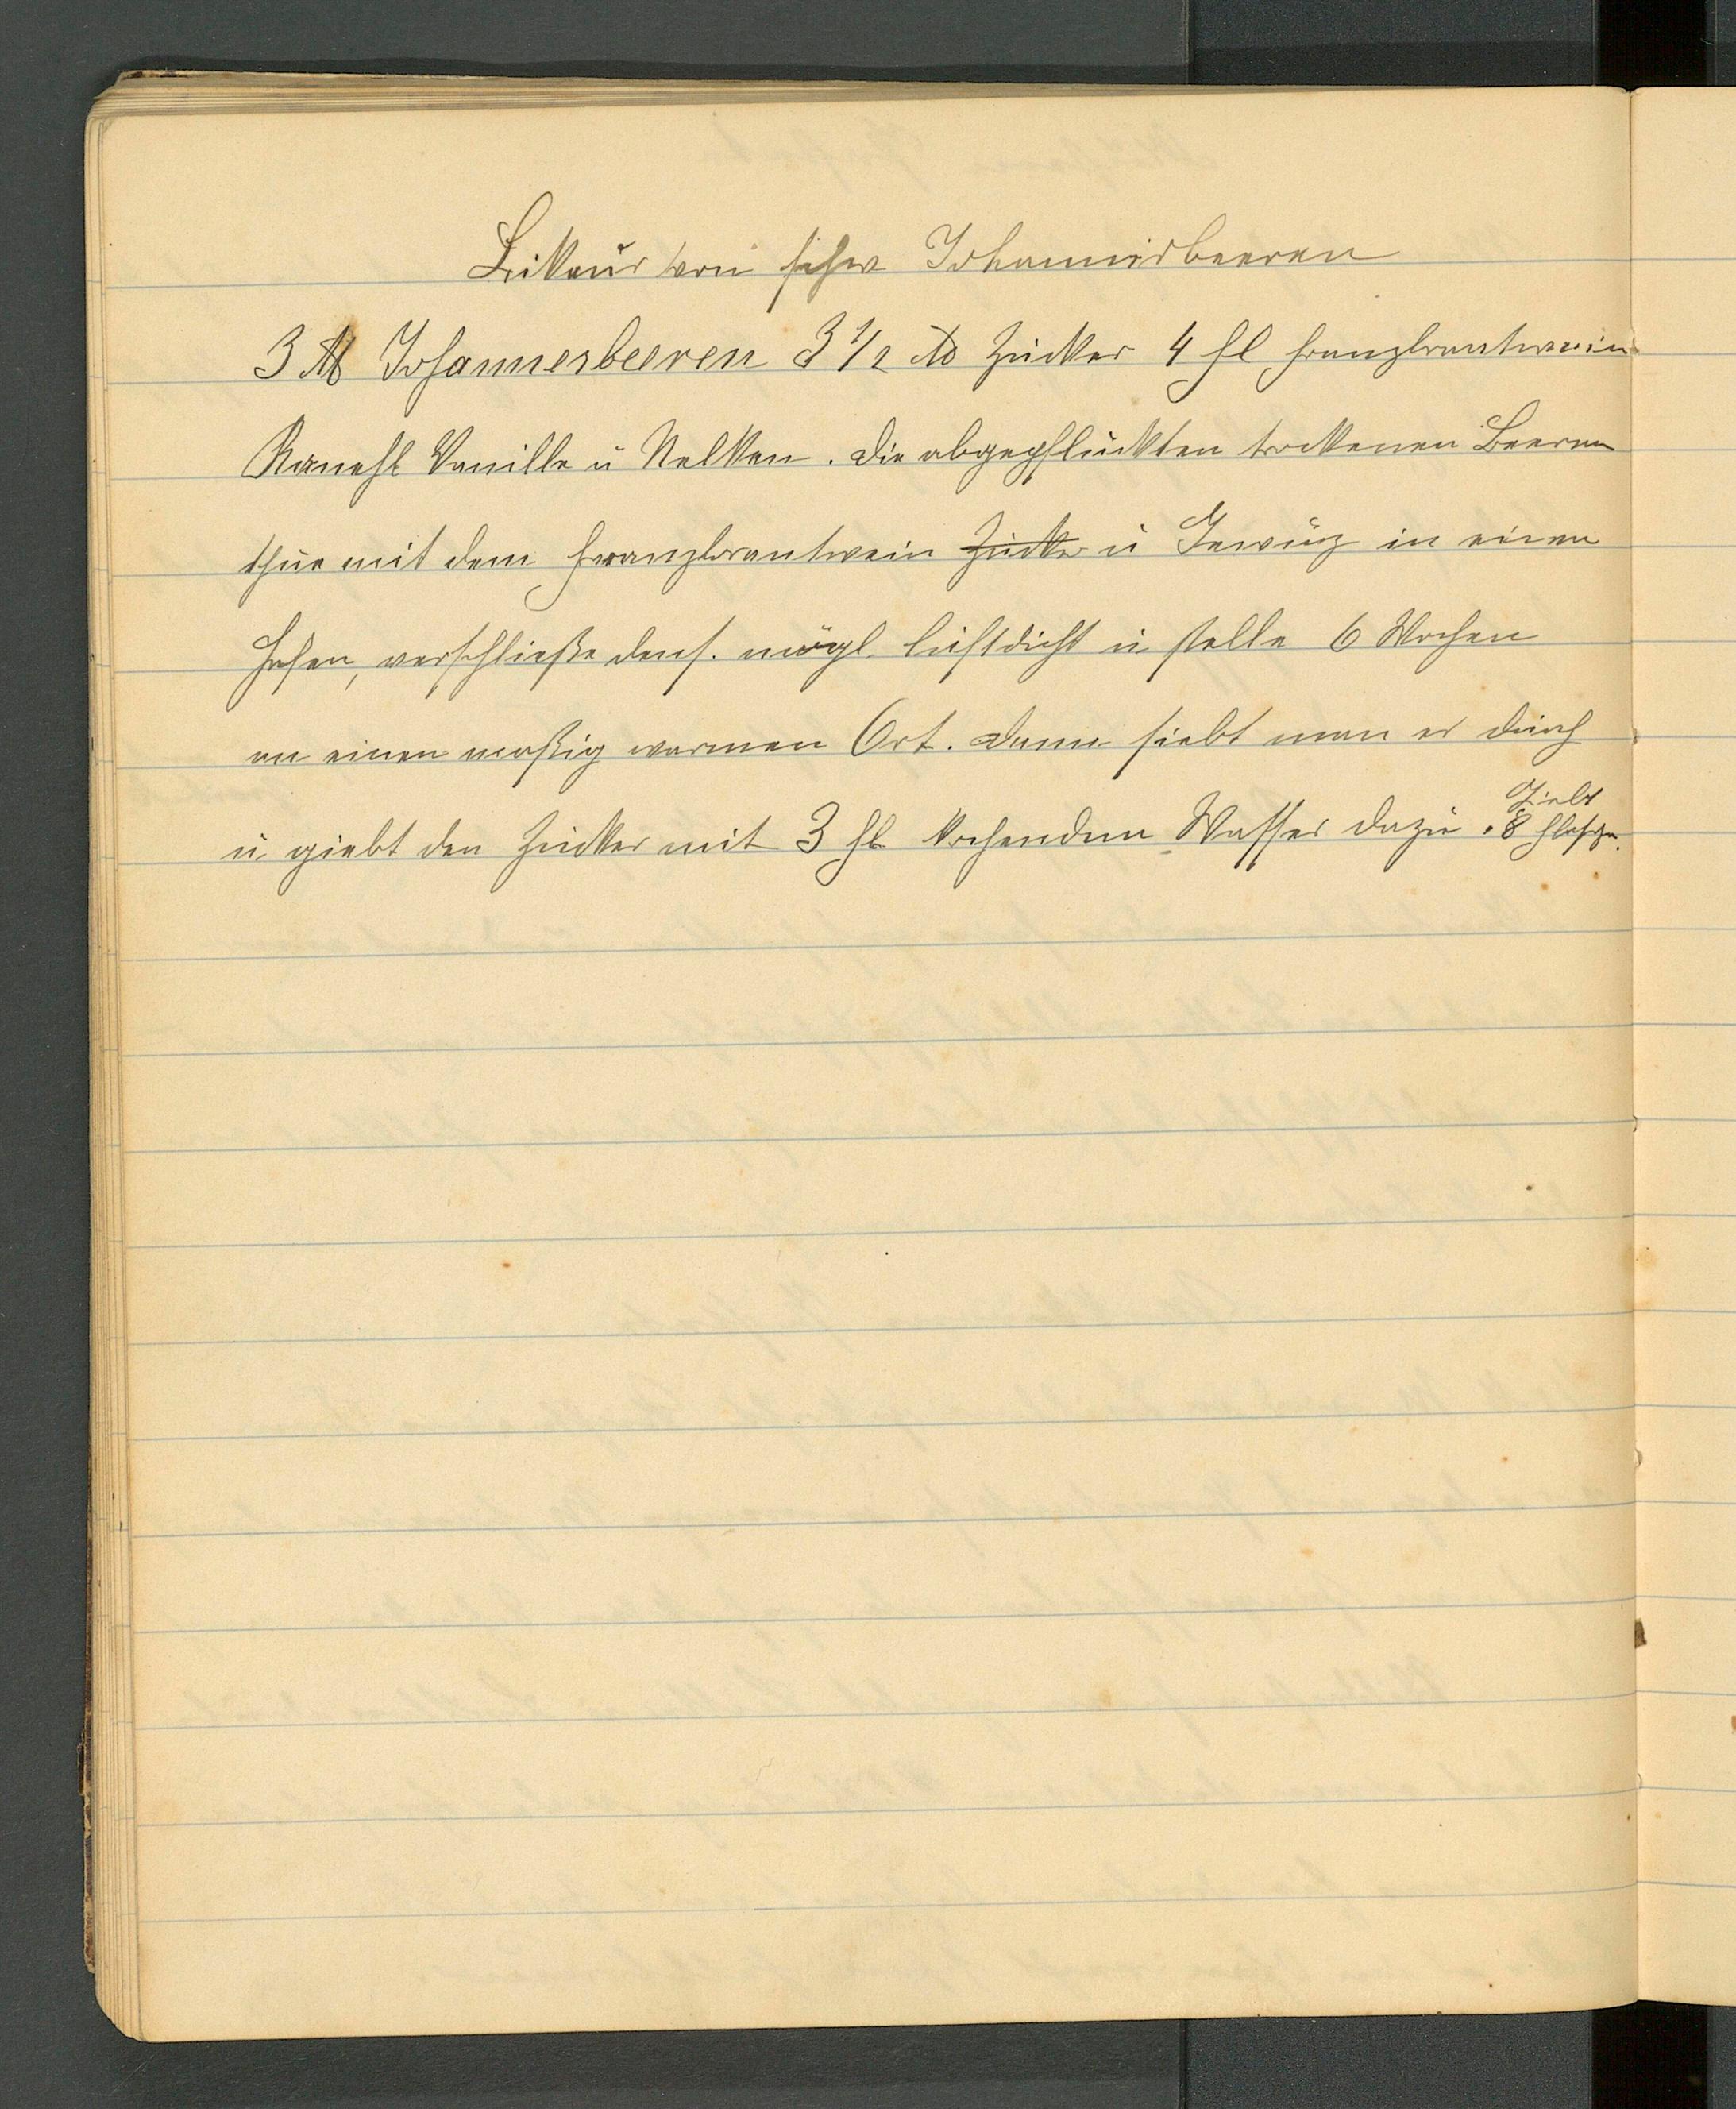 Likeur von schw Johannisbeeren
3 ℔ Johannesbeeren 3 1/2 ℔ Zucker 4 Fl Franzbrantwein
Kanehl Vanille u Nelken. Die abgepflückten trockenen Beeren
thue mit dem Franzbrantwein Zucke u Gewürz in einen
Hafen, verschließe dens. mögl. luftdicht u stelle 6 Wochen
an einen maßig warmen Ort. Dann siebt man es durch
u giebt den Zucker mit 3 Fl kochendem Wasser dazu. Giebt 8 Flasche.